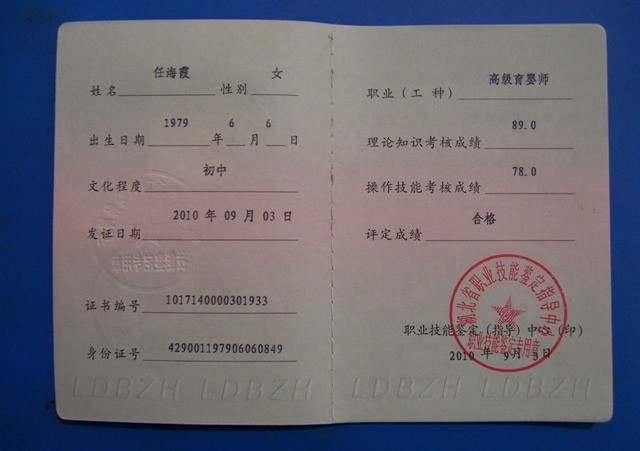 姓名 任海霞 性别 女
出生日期 1979 年 6 月 6 日
文化程度 初中
发证日期 2010 年 09 月 03 日
证书编号 1017140000301933
身份证号 429001197906060849
LDBZH LDBZH
职业（工 种） 高级育婴师
理论知识考核成绩 89.0
操作技能考核成绩 78.0
评定成绩 合格
湖北省职业技能鉴定指导中心
职业技能鉴定专用章
职业技能鉴定（指导）中心（印）
2010 年 9月 3日
LDBZH LDBZH